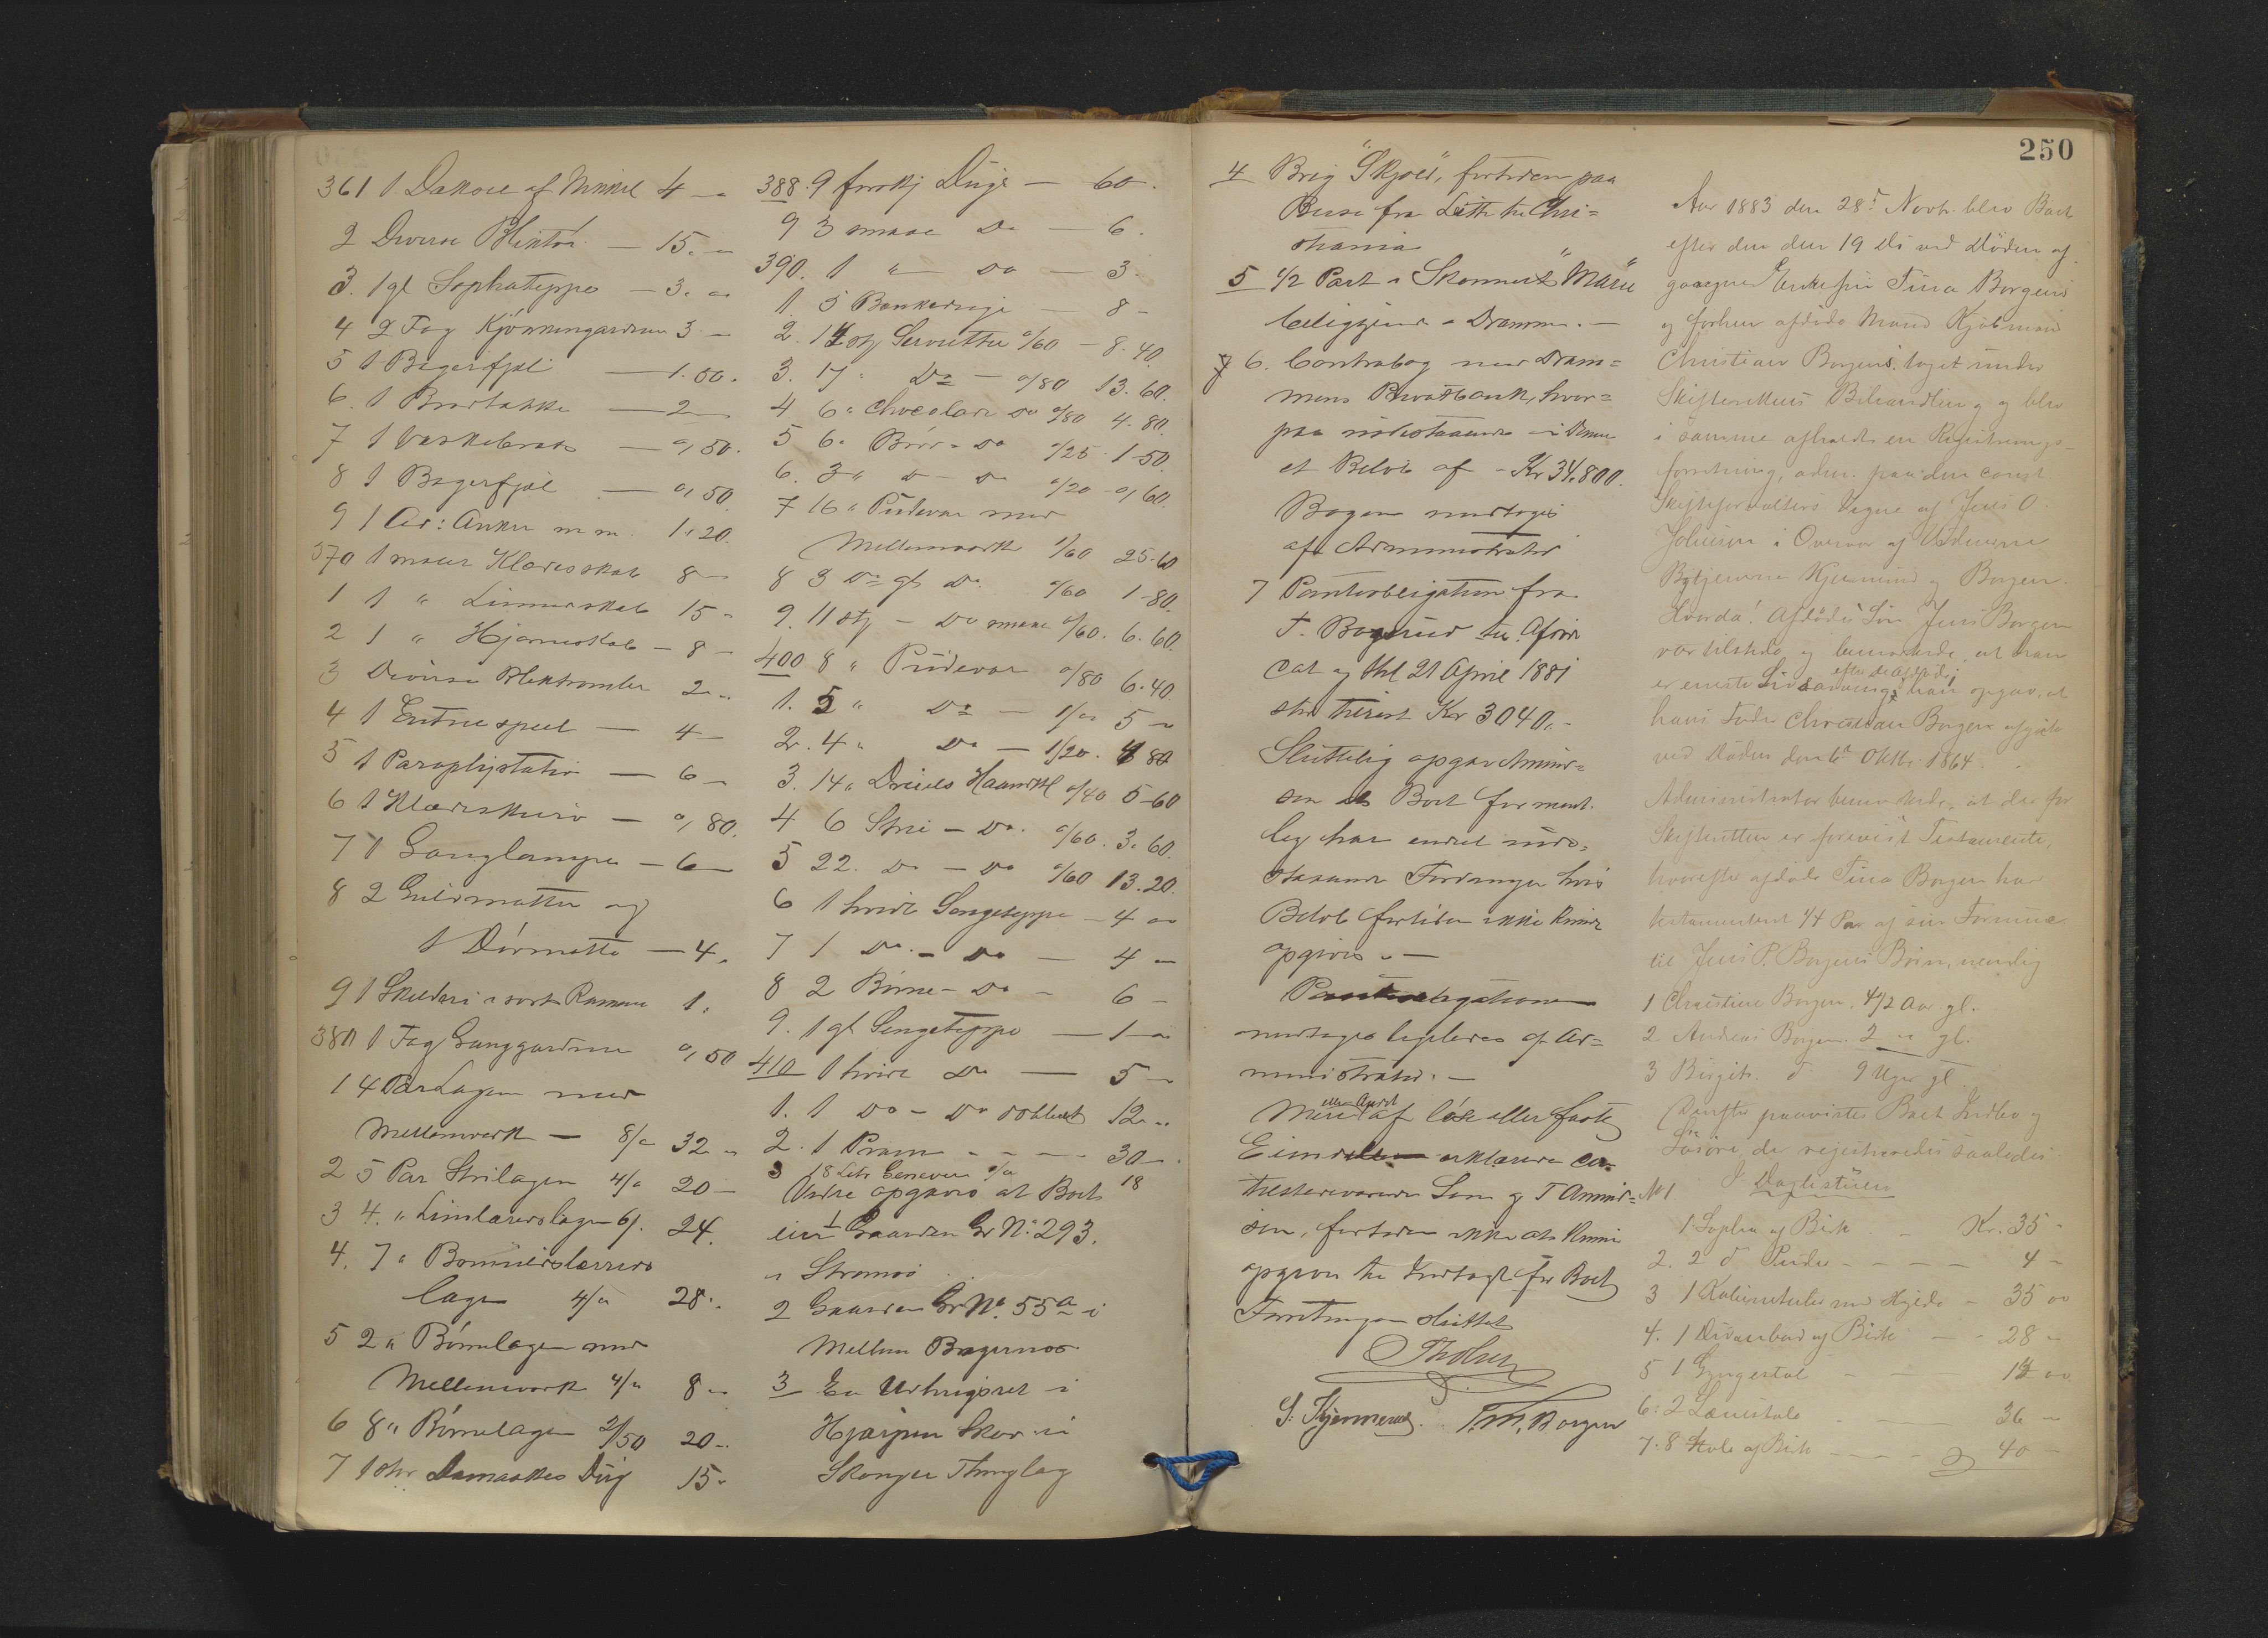 361 1 Dakore af Mikkel 4 -
2 Diverse Bliktöi - 15. -
3. 1 gl Sophateppe - 3. -
4 2 Fag Kjökkengardiner 3 -
5 1 Bagerfjel - 1.50.
6. 1 Brødbakke - 2 -
7 1 Vaskebræt - 0,50.
8 1 Bagerfjel - 0,50
9 1 Anker m.m. 1.20.
370 1 malet Klædesskab 8 -
1 1 " Linnedskab 15 -
2 1 " Hjørneskab - 8 -
3 Diverse Bliktromler 2 -
4 1 Entrespeil - 4 -
5 1 Paraplystativ - 6 -
6 1 Klædeskurv - 0,80.
7 1 Ganglampe - 6 -
8 2 Gulvmatter og
1 Dörmatte - 4.
9 1 Skilderi i sort Ramme 1.
380 1 Fag Ganggardiner 0,50
1 4 Par Lagen med
Mellemværk - 8/- 32 -
2 5 Par Strilagen 4/- 20 -
3 4. " Linlærredslagen 6/. 24.
4. 7 " Bomuldslærreds
lagen 4/- 28 -
5 2 " Børnelagen med
Mellemværk 4/- 8 -
6 8 " Børnelagen 2/50 20 -
7 1 stor Damaskes Dug 15 -
388. 9 forskj Duge - 60.
9 3 smaa Do - 6.
390. 1 " Do - 3.
1. 5 Bænkeduge - 8 -
2. 14 stk Servietter 0/60 - 8.40.
3. 17 " Do - 0/80 13.60.
4 6 " Chocolade Do 0/80 4.80.
5 6 " Börne Do 0/25 1.50.
6. 3 " Do - Do 0/20 - 0,60.
7 16 " Pudevar med
Mellemværk 1/60 25.60
8 3 Do gl Do 0/60 1.80.
9. 11 stk - Do smaa 0/60. 6.60.
400 8 " Pudevar 0/80 6.40
1. 5 " Do - 1/00 5 -
2. 4 " Do - 1/20. 4 80
3. 14 " Dreiels Haandkl 0/40 5-60
4 6 Strie - Do. 0/60. 3.60.
5 22. Do - Do 0/60 13.20.
6 1 hvidt Sengeteppe - 4 -
7 1 Do. - Do - 4 -
8 2 Börne - Do - 6 -
9. 1 gl Sengeteppe - 1 -
410 1 hvidt Do - 5 -
1. 1 Do - Do dobbelt 12 -
2. 1 Pram - - - - 30 -
3 18 Litr Genever 1/- 18
Videre opgaves at Boet
eier 1 Gaarden Gr No: 293.
i Strømsö
2 Gaarden Gr No. 55a i
Mellem Bragernæs
3 En Udhugsret i
Hjarpen Skov i
Skouger Thinglag
250
4 Brig "Skjold", fortiden paa
Reise fra Leith til Chri=
stiania
5 1/2 Part i Skonnert "Marie"
beliggende i Drammen. -
6. Contrabog med Dram=
mens Privatbank, hvor=
paa indestaaende i denne
et Belöb af - Kr 34.800.
Bogen modtoges
af Administrator
7 Pantobligation fra
T. Bogerud til Afdøde
dat og thl 21 April 1881
stor tilrest Kr 3040. -
Sluttelig opgav Amund=
sen at Boet forment=
lig har endel ude=
staaende Fordringer hvis
Belöb fortiden ikke kunde
opgives. -
Pantobligationen
modtoges ligeledes af Ad=
ministrator. -
Mere eller Andet af löse eller faste
Eiendele erklærede de
tilstedeværende Sön og T Amund=
sen, fortiden ikke at kunne
opgives til Indtægt for Boet
Forretningen sluttet
Tholsen
S. Kjernerud. T. M. Borgen
Aar 1883 den 28de Novbr. blev Boet
efter den den 19 Ds ved Døden af=
gaaegne Enkefru Tina Borgen
og forhen afdøde Mand Kjøbmand
Christian Borgen taget under
Skifterettens Behandling og blev
i samme afholdt en Registrerings-
forretning, adm. paa den const
Skifteforvalters Vegne af Jens O.
Johnsen i Overvær af Vidnerne
Bytjenerne Kjernerud og Borgen.
Hvorda! Afdødes Søn Jens Borgen
var tilstede og bemærkede, at han
er eneste Livsarving efter de Afdøde; han opgav, at
hans Fader Christian Borgen afgik
ved Døden den 6te Oktbr. 1864.
Administrator bemærkede, at der for
Skifteretten er forevist Testamente,
hvorefter afdøde Tina Borgen har
testamenteret 1/4 Par af sin Formue
til Jens P. Borgens Börn, nemlig
1 Christine Borgen, 4 1/2 Aar gl.
2 Andreas Borgen. 2 " gl.
3 Birgit. d 9 Uger gl.
Derefter paavistes Boets Indbo og
Løsøre, der registreredes saaledes
I Dagligstuen
No 1. 1 Sopha af Birk - Kr. 35 -
2. 2 d Puder - - - - 4 -
3 1 Kabinetsuhr med Hylde - 35 00
4. 1 Divanbord af Birk - - 28 -
5 1 Gyngestol - - 12 00
6. 2 Lænestole - 36 -
7. 8 Stole af Birk - - - 40 -